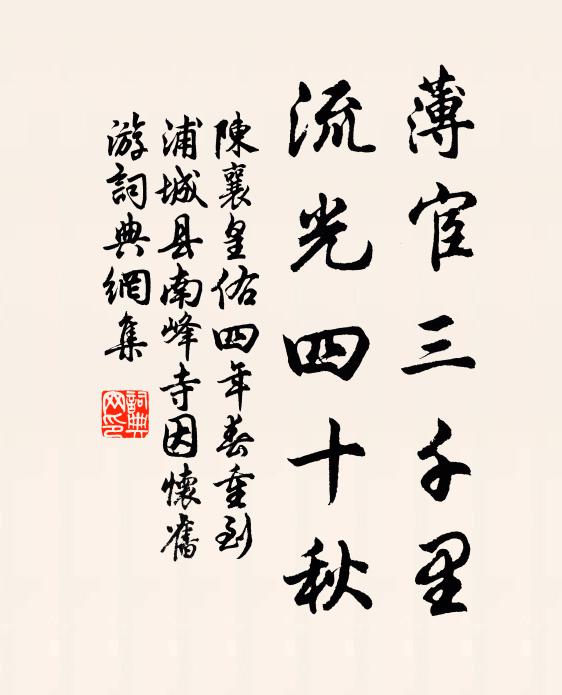 薄宦三千里
流光四十秋
陳襄皇佑四年春重到
浦城县南峰寺因懷舊
游詞典網集
詞典
网印